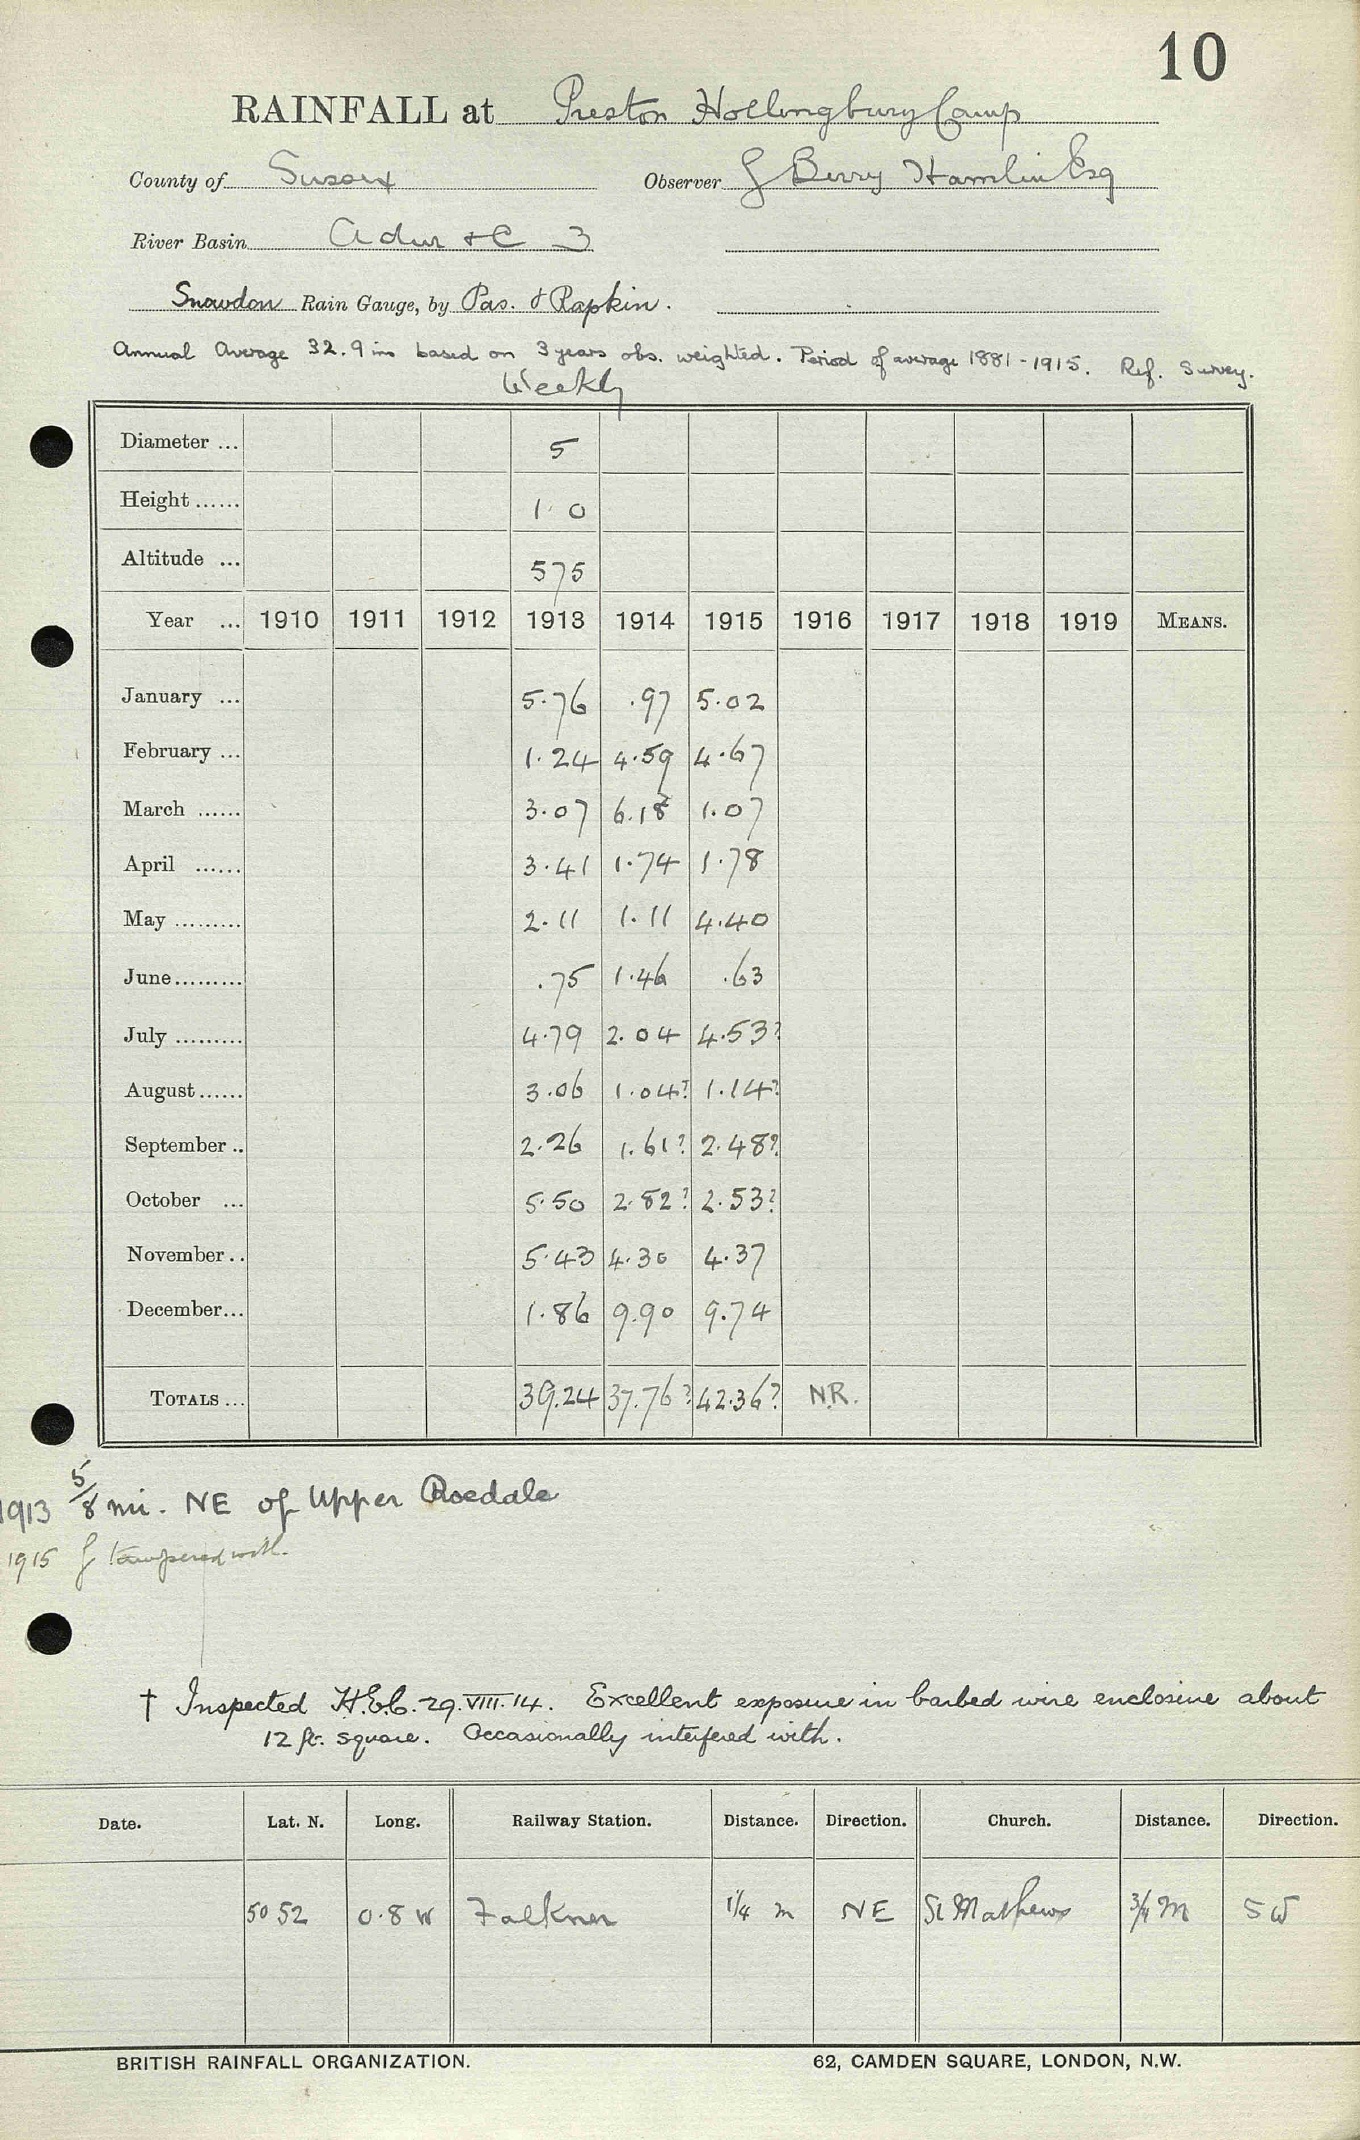 10
RAINFALL at Preston Hollingbury Camp
County of Sussex Observer G Berry Hamlin Esq
River Basin Adur &C 3
Snowdon Rain Gauge, by Pas. & Rapkin.
Annual Average 32.9 ins based on 3 years obs. weighted. Period of average 1881-1915. Ref. Survey.
Weekly
Diameter ... 5
Height ...... 1 0
Altitude ... 575
Year ... 1910 1911 1912 1913 1914 1915 1916 1917 1918 1919 MEANS.
January ... 5.76 .97 5.02
February ... 1.24 4.59 4.67
March ...... 3.07 6.18 1.07
April ...... 3.41 1.74 1.78
May ......... 2.11 1.11 4.40
June ......... .75 1.46 .63
July ......... 4.79 2.04 4.53?
August ...... 3.06 1.04? 1.14?
September .. 2.26 1.61? 2.48?
October ... 5.50 2.82? 2.53?
November .. 5.43 4.30 4.37
December ... 1.86 9.90 9.74
TOTALS ... 39.24 37.76? 42.36? N.R.
1913 5/8 mi. NE of Upper Roedale
1915 g tampered with.
† Inspected H.E.C. 29.VIII.14. Excellent exposure in barbed wire enclosure about
12 ft. square. Occasionally interfered with.
Date. Lat. N. Long. Railway Station. Distance. Direction. Church. Distance. Direction.
50 52 0.8 W Falkner 1/4 m NE St Mathews 3/4 M SW
BRITISH RAINFALL ORGANIZATION. 62, CAMDEN SQUARE, LONDON, N.W.